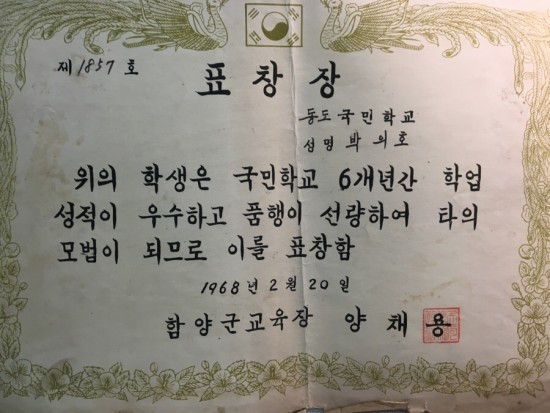 제 1857 호
표창장
동도국민학교
성명 박의호
위의 학생은 국민학교 6개년간 학업
성적이 우수하고 품행이 선량하여 타의
모범이 되므로 이를 표창함
1968년 2월 20일
함양군교육장 양채용